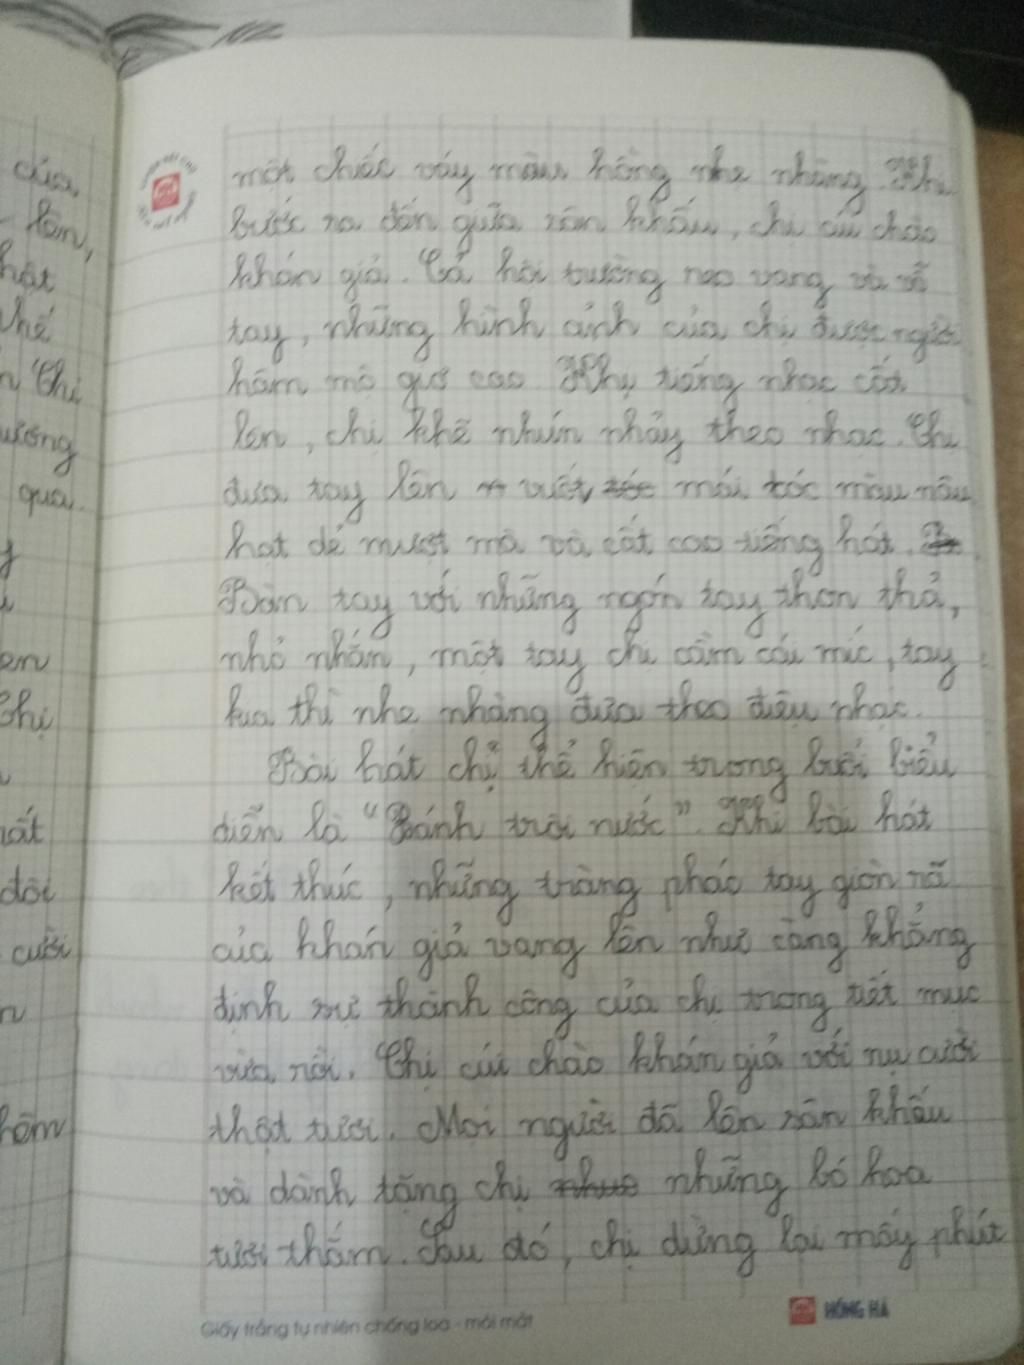 một chiếc váy màu hồng nhẹ nhàng. Khi
bước ra đến giữa sân khấu, chị cúi chào
khán giả. Cả hội trường reo vang và vỗ
tay, những hình ảnh của chị được người
hâm mộ giơ cao. Khi tiếng nhạc cất
lên, chị khẽ nhún nhảy theo nhạc. Chị
đưa tay lên vuốt mái tóc màu nâu
hạt dẻ mượt mà và cất cao tiếng hát.
Bàn tay với những ngón tay thon thả,
nhỏ nhắn, một tay chị cầm cái míc, tay
kia thì nhẹ nhàng đưa theo điệu nhạc.
Bài hát chị thể hiện trong buổi biểu
diễn là "Bánh trôi nước". Khi bài hát
kết thúc, những tràng pháo tay giòn rã
của khán giả vang lên như càng khẳng
định sự thành công của chị trong tiết mục
vừa rồi. Chị cúi chào khán giả với nụ cười
thật tươi. Mọi người đã lên sân khấu
và dành tặng chị những bó hoa
tươi thắm. Sau đó, chị dừng lại mấy phút
Giấy trắng tự nhiên chống loá - mỏi mắt
HỒNG HÀ
của
hật
Chị
ương
qua.
en
Chị
đôi
cười